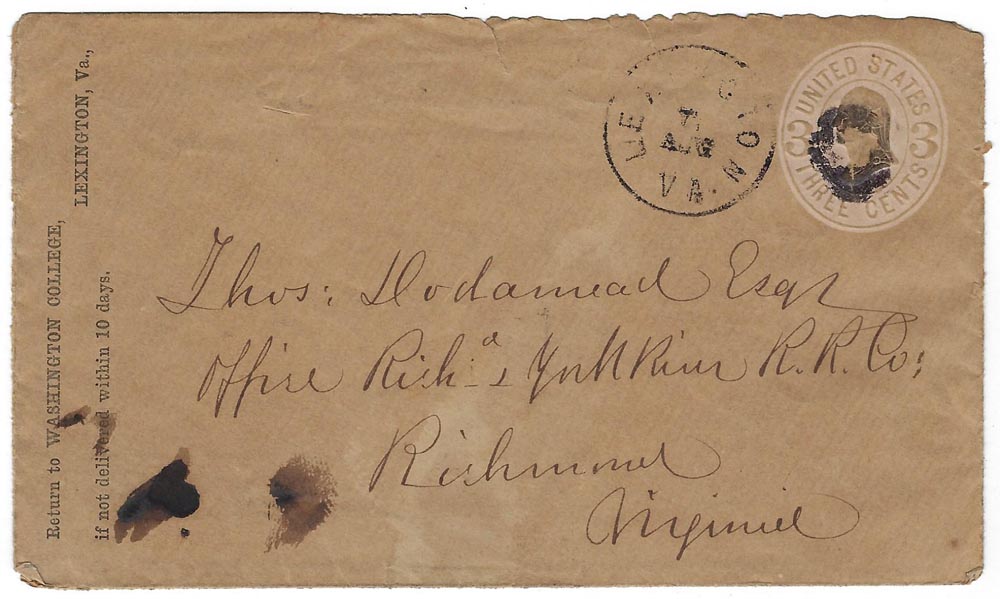 Return to WASHINGTON COLLEGE,
LEXINGTON, Va.,
if not delivered within 10 days.
LEXINGTON
AUG
VA.
UNITED STATES
3 3
THREE CENTS
Thos: Dodamead Esqr
Office Richd & York River R. R. Co:
Richmond
Virginia